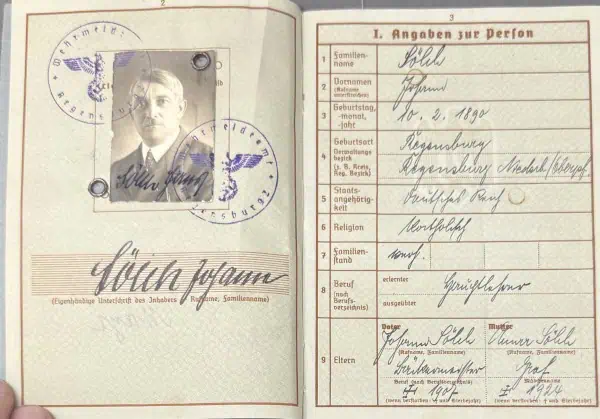 2
Wehrmeldeamt
Regensburg
Wehrmeldeamt
Regensburg
Sölch Johann
(Eigenhändige Unterschrift des Inhabers Rufname, Familienname)
3
I. Angaben zur Person
1 Familien-
name Sölch
2 Vornamen Johann
(Rufname
unterstreichen)
3 Geburtstag,
-monat,
-jahr 10. 2. 1890
4 Geburtsort Regensburg
Verwaltungs-
bezirk
(z. B. Kreis,
Reg. Bezirk) Regensburg Niederb/Oberpf.
5 Staats-
angehörig-
keit Deutsches Reich
6 Religion Katholisch
7 Familien-
stand verh.
8 Beruf
(nach
Berufs-
verzeichnis)
erlernter Hauptlehrer
ausgeübter
9 Eltern
Vater Mutter
Johann Sölch Anna Sölch
(Rufname, Familienname) (Rufname, Familienname)
Bäckermeister Graf
(Beruf nach Berufsverzeichnis) (Mädchenname)
1907 1924
(wenn verstorben: † und Sterbejahr) (wenn verstorben: † und Sterbejahr)